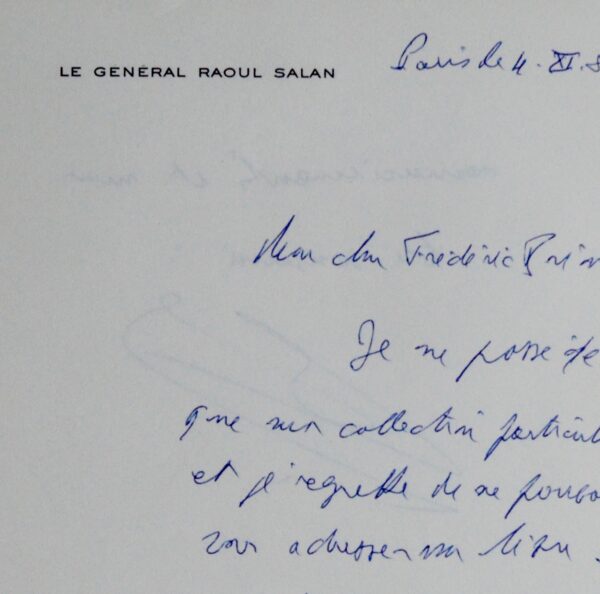 LE GÉNÉRAL RAOUL SALAN
Paris le 4. XI. 8
Mon cher Frédéric
Je ne possède
que ma collection particul
et je regrette de ne pouvo
vous adresser un livre.